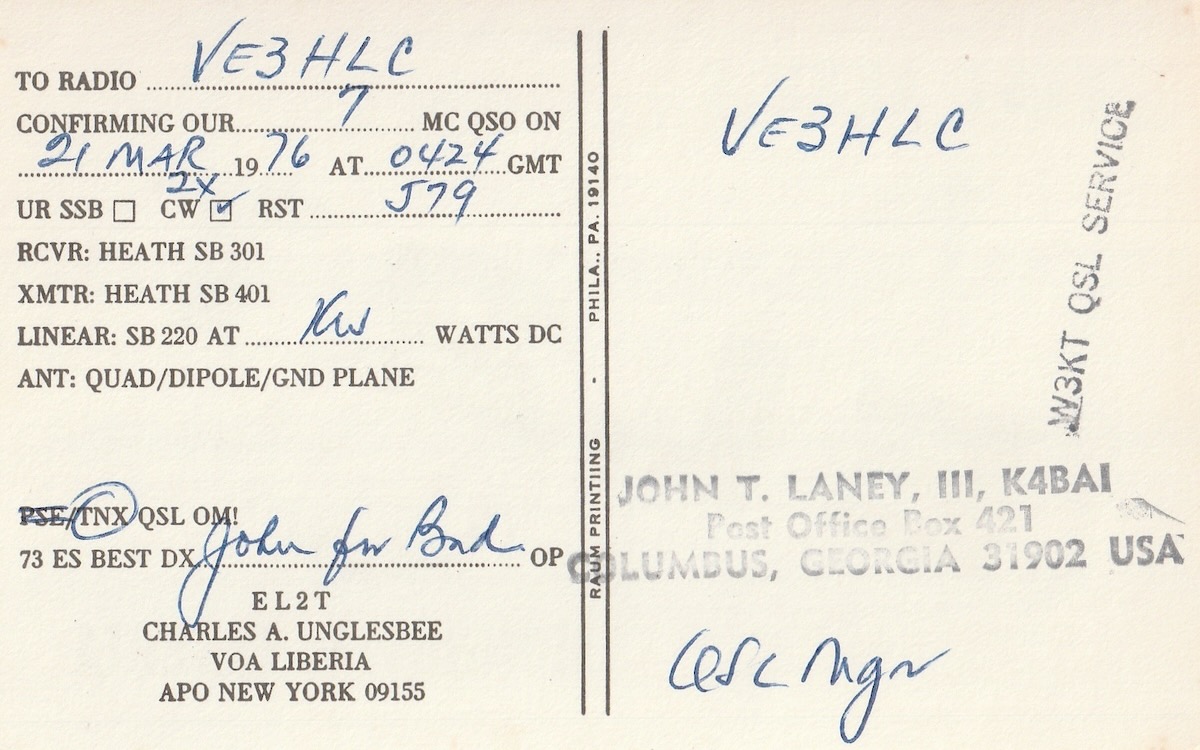 TO RADIO VE3HLC
CONFIRMING OUR 7 MC QSO ON
21 MAR 1976 AT 0424 GMT
2X
UR SSB ☐ CW ☑ RST 579
RCVR: HEATH SB 301
XMTR: HEATH SB 401
LINEAR: SB 220 AT KW WATTS DC
ANT: QUAD/DIPOLE/GND PLANE
PSE/TNX QSL OM!
73 ES BEST DX John for Bud OP
EL2T
CHARLES A. UNGLESBEE
VOA LIBERIA
APO NEW YORK 09155
RAUM PRINTIING - PHILA., PA. 19140
VE3HLC
W3KT QSL SERVICE
JOHN T. LANEY, III, K4BAI
Post Office Box 421
COLUMBUS, GEORGIA 31902 USA
QSL Mgr